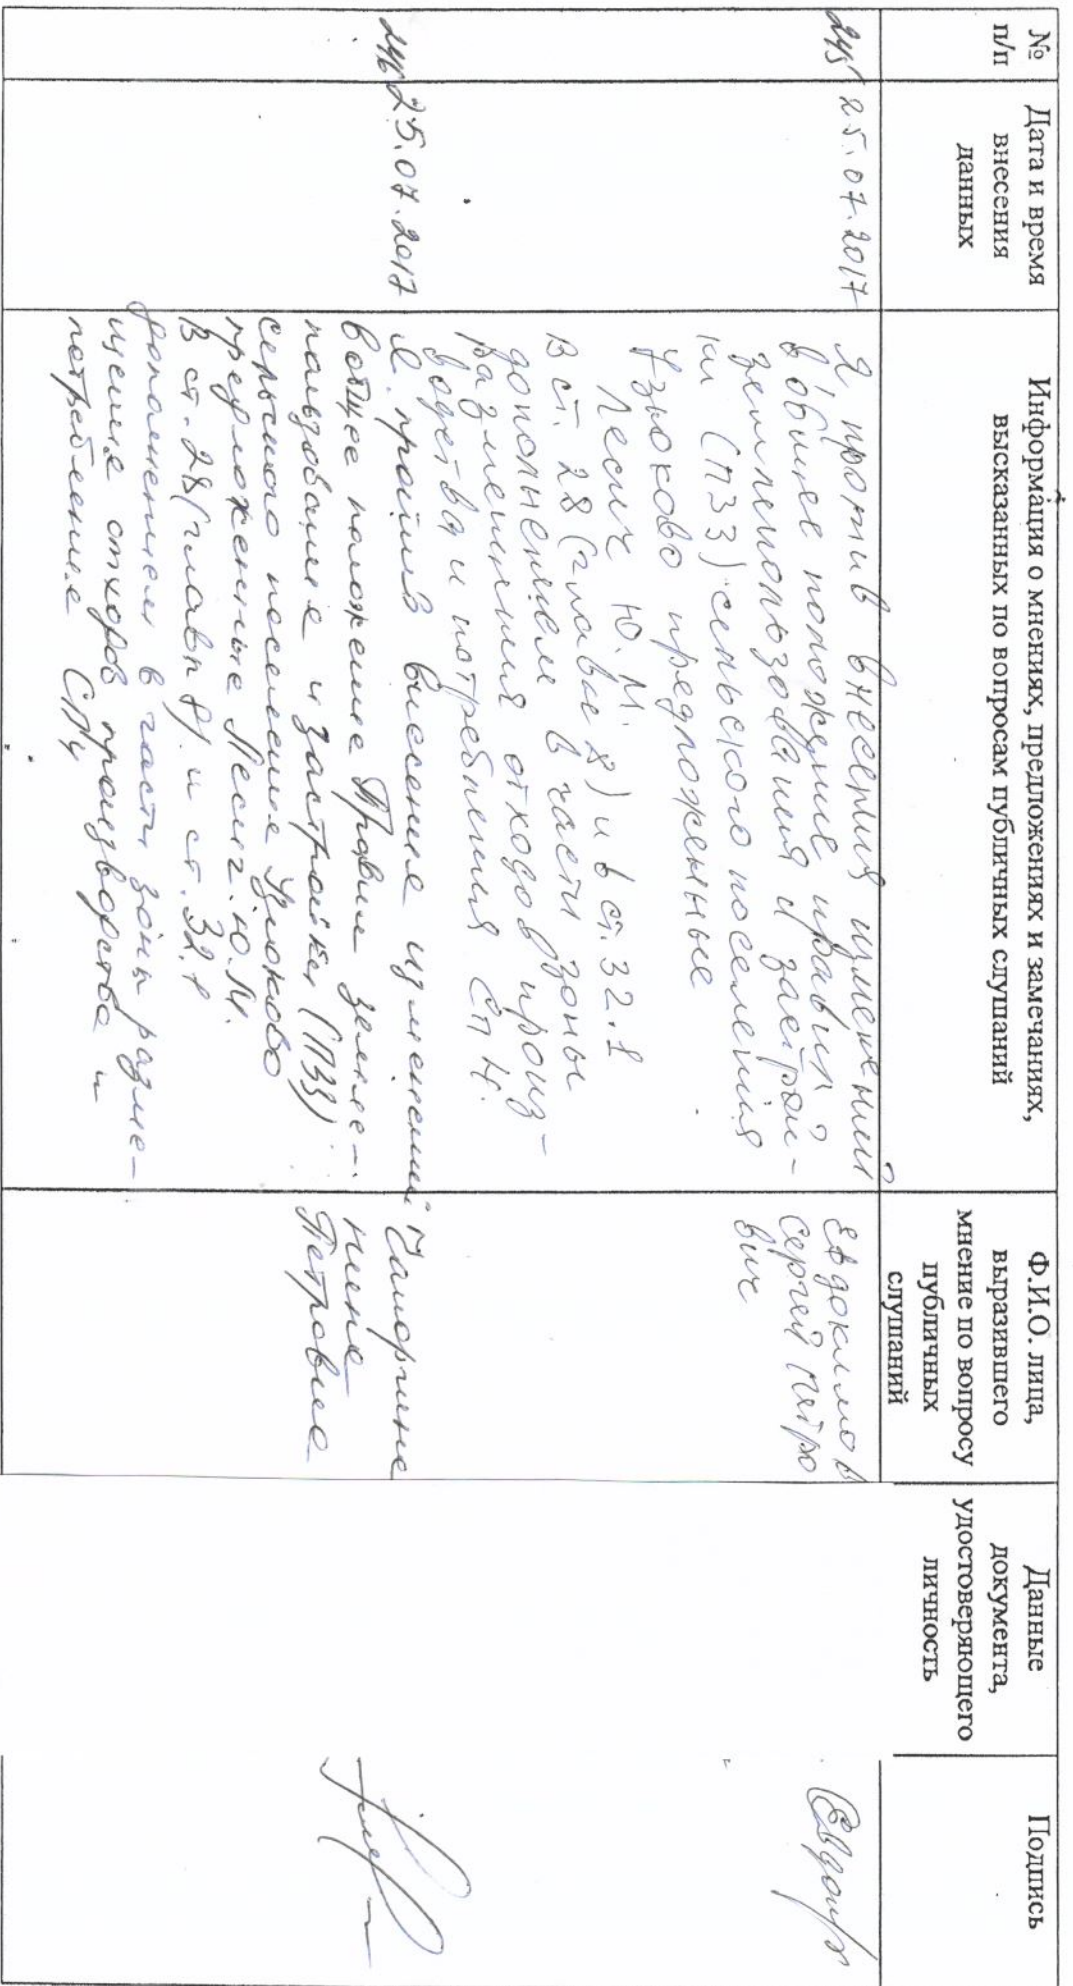 №
п/п
Дата и время
внесения
данных
Информация о мнениях, предложениях и замечаниях,
высказанных по вопросам публичных слушаний
Ф.И.О. лица,
выразившего
мнение по вопросу
публичных
слушаний
Данные
документа,
удостоверяющего
личность
Подпись
245 25.07.2017
Я, против внесения изменений
в общее положение правил
землепользования и застрой-
ки (ПЗЗ) сельского поселения
Узюково предложенные
Лесич Ю.М.
в ст. 28 (главы 8) и в ст. 32.1
дополнением в части зоны
размещения отходов произ-
водства и потребления СП4.
Евдокимов
Сергей Петро
вич
246 25.07.2017
Я, против внесение изменений
в общее положение Правил земле-
пользование и застройки (ПЗЗ)
сельского поселение Узюково
предложенные Лесич.Ю.М.
В ст. 28 (главы 8). и ст. 32.1
дополнением в части зоны разме-
щение отходов производства и
потребление СП4
Нина
Петровна